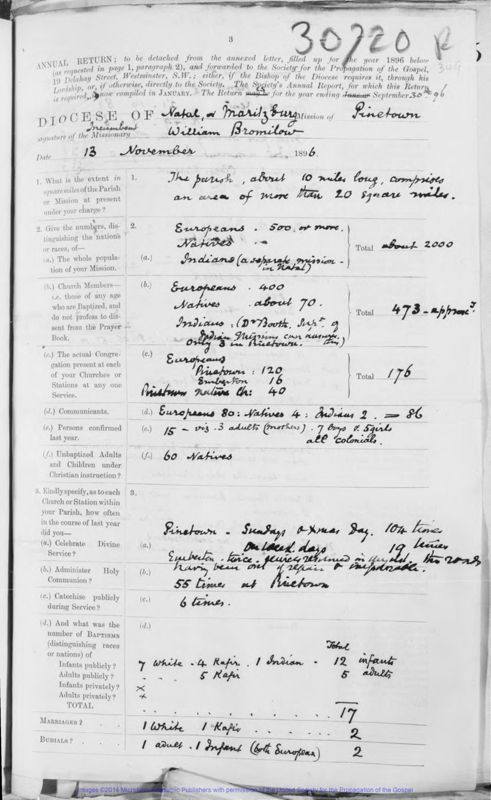 3
30720 R
ANNUAL RETURN; to be detached from the annexed letter, filled up for the year 1896 below
(as requested in page 1, paragraph 2), and forwarded to the Society for the Propagation of the Gospel,
19 Delahay Street, Westminster, S.W.; either, if the Bishop of the Diocese requires it, through his
Lordship, or, if otherwise, directly to the Society. The Society's Annual Report, for which this Return
is required, is now compiled in JANUARY. The Return is for the year ending September 30th 96
DIOCESE OF Natal, or Maritzburg Mission of Pinetown
Incumbent
signature of the Missionary William Bromilow
Date 13 November 1896.
1. What is the extent in square miles of the Parish or Mission at present under your charge?
1. The parish, about 10 miles long, comprises
an area of more than 20 square miles.
2. Give the numbers, distinguishing the nations or races, of—
(a.) The whole population of your Mission.
2. Europeans . 500, or more.
Natives "
(a.) Indians (a separate mission - in Natal)
Total about 2000
(b.) Church Members—i.e. those of any age who are Baptized, and do not profess to dissent from the Prayer Book.
(b.) Europeans . 400
Natives . about 70.
Indians, (Dr Booth. Supt. of
Indian Missions can answer this)
only 3 in Pinetown.
Total 473 - approx.
(c.) The actual Congregation present at each of your Churches or Stations at any one Service.
(c.) Europeans
Pinetown : 120
Emberton 16
Pinetown native Ch: 40
Total 176
(d.) Communicants.
(d.) Europeans 80: Natives 4: Indians 2. = 86
(e.) Persons confirmed last year.
(e.) 15 - viz. 3 adults (mothers). 7 boys & 5 girls
all colonials.
(f.) Unbaptized Adults and Children under Christian instruction?
(f.) 60 Natives
3. Kindly specify, as to each Church or Station within your Parish, how often in the course of last year did you—
3.
(a.) Celebrate Divine Service?
Pinetown - Sundays & Xmas Day. 104 times
(a.) On week days 19 times
Emberton - twice. services resumed in August, the roads
having been out of repair & impassable.
(b.) Administer Holy Communion?
(b.) 55 times at Pinetown
(c.) Catechise publicly during Service?
(c.) 6 times.
(d.) And what was the number of BAPTISMS (distinguishing races or nations) of
(d.)
Total
Infants publicly? 7 white - 4 Kafir. 1 Indian - 12 infants
Adults publicly? 5 Kafir 5 adults
Infants privately? x
Adults privately? x
TOTAL 17
MARRIAGES? 1 White 1 Kafir 2
BURIALS? 1 adult. 1 Infant (both European) 2